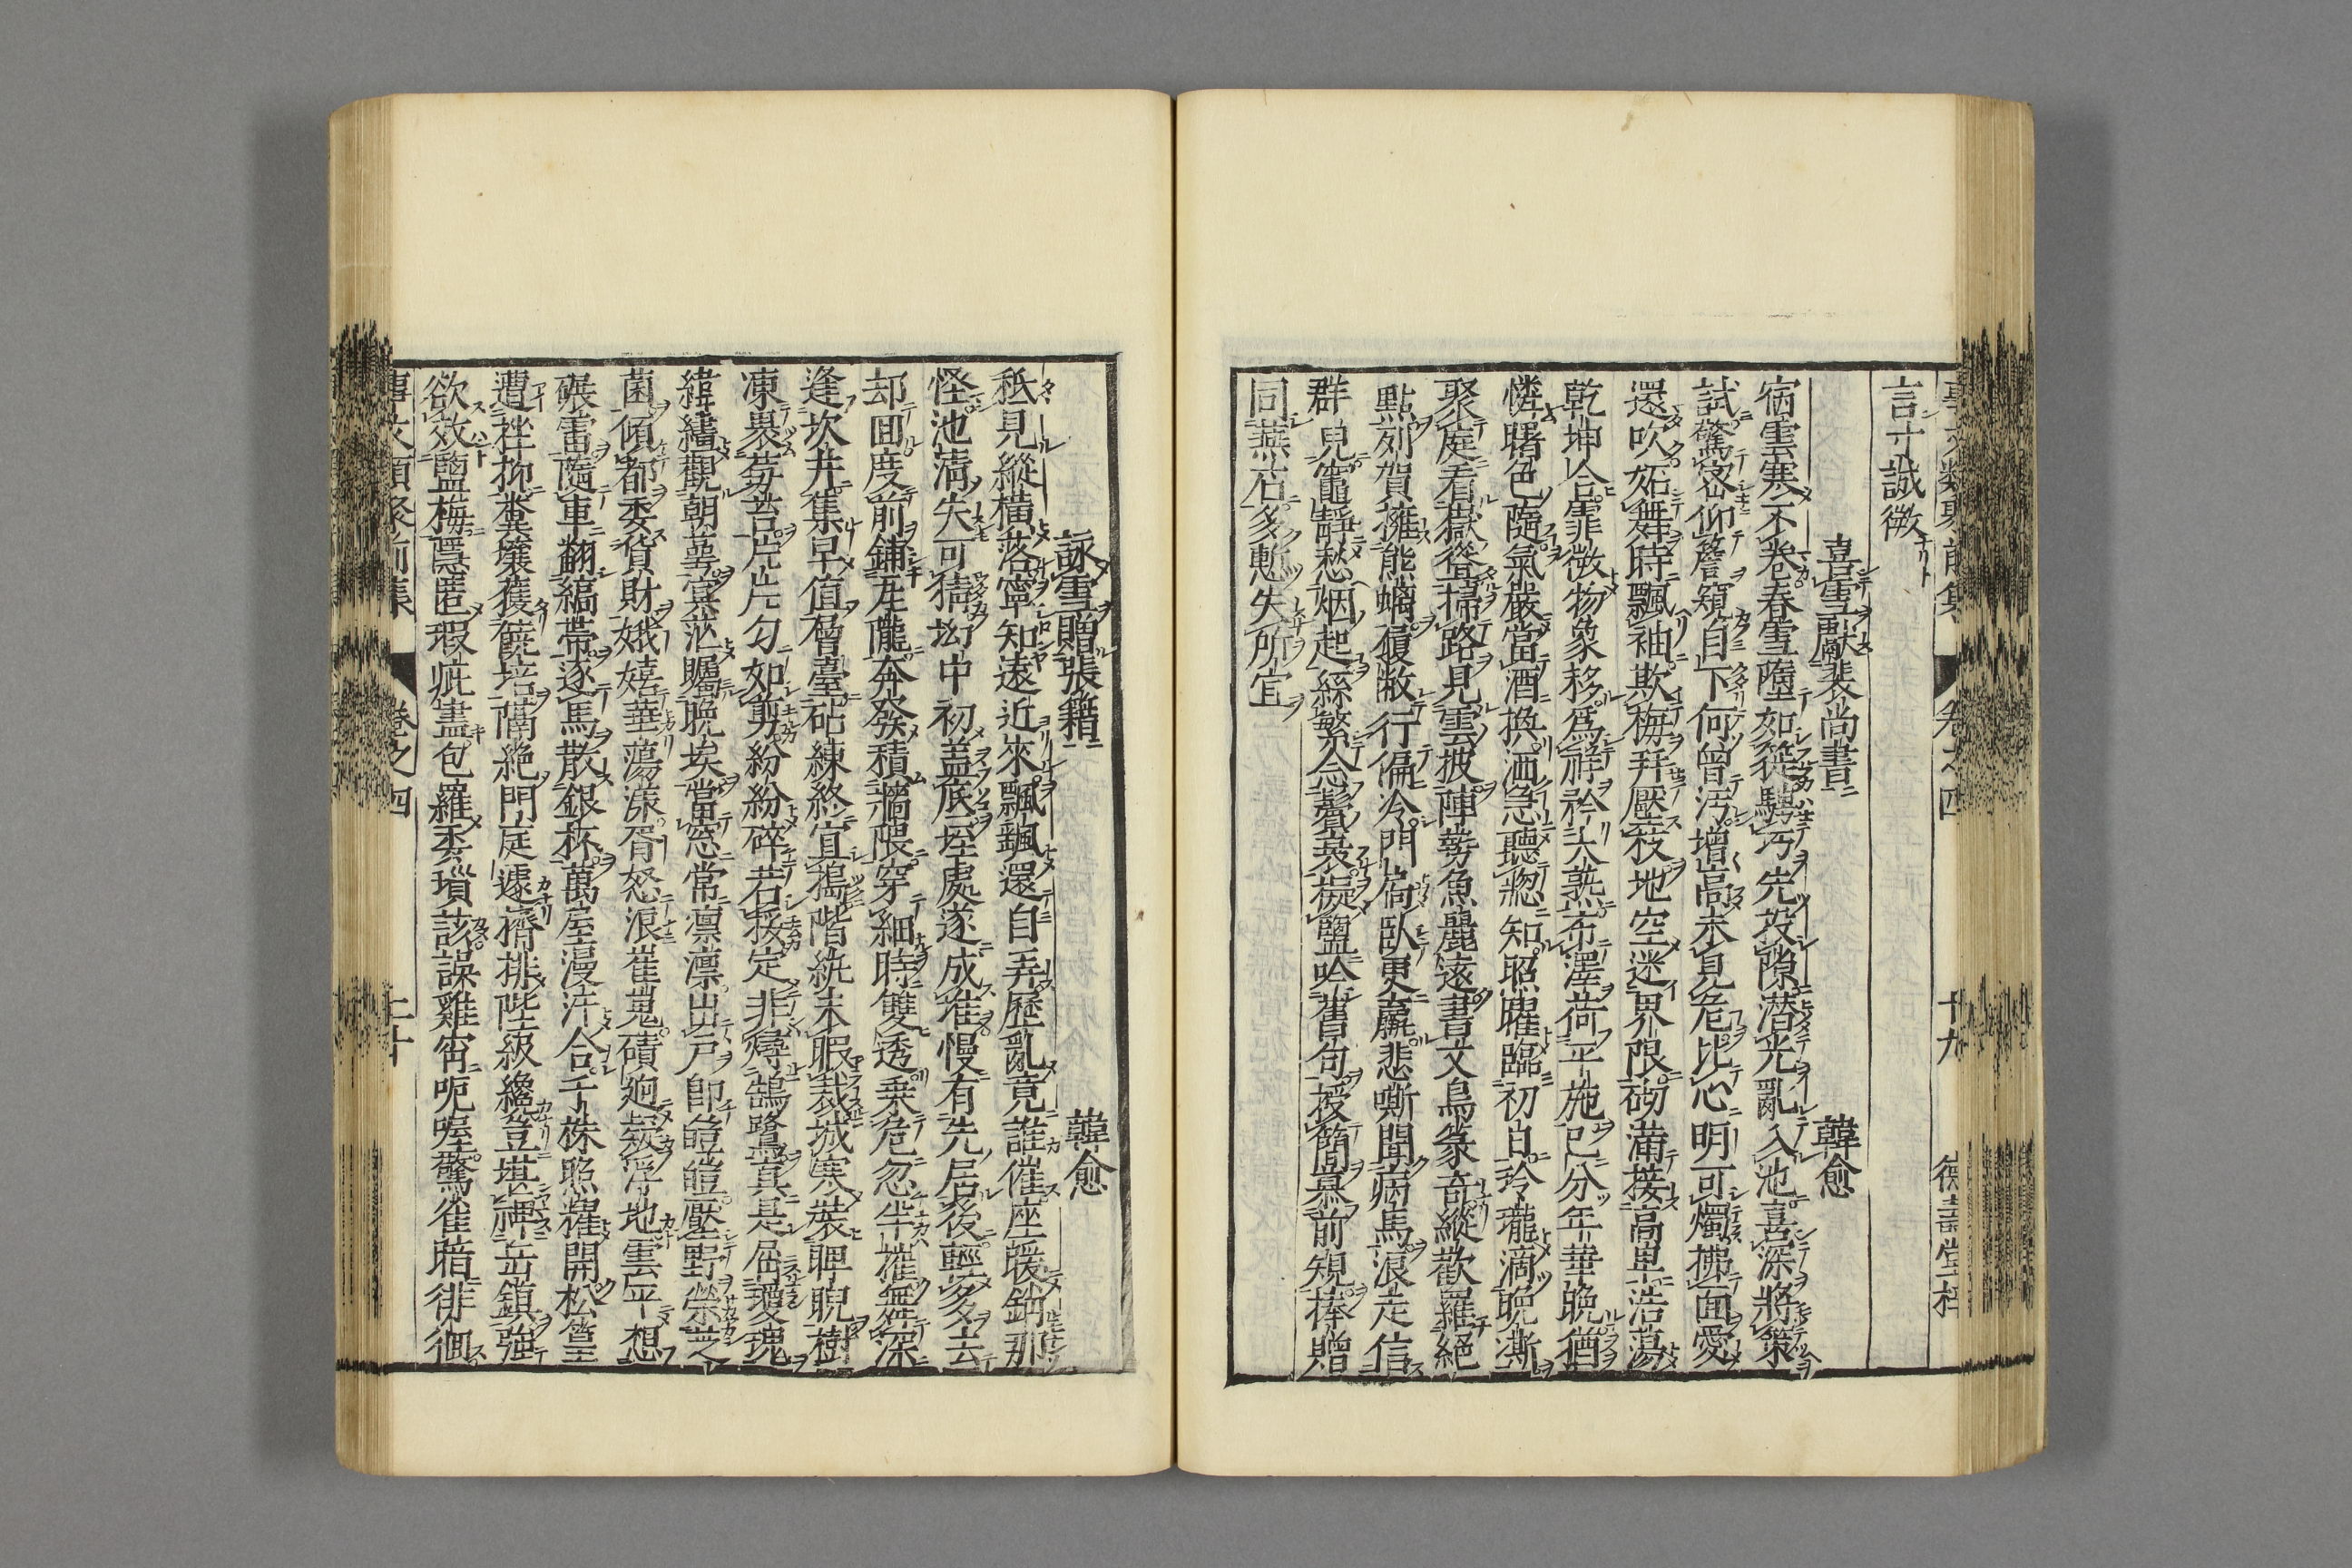 言寸誠微
喜雪獻裴尚書 韓愈
宿雲寒不卷春雪墮如簁騁巧先投隙潜光亂入池喜深將策
試驚密仰簷窺自下何曾汚增高未見危比心明可燭拂面愛
還吹妬舞時飄袖欺梅并壓枝地空迷界限砌滿接高卑浩蕩
乾坤合霏微物象移爲祥矜大熟布澤荷平施已分年華晚猶
憐曙色隨氣嚴當酒換洒急聽窓知照曜臨初日玲瓏滴晚澌
聚庭看嶽聳掃路見雲披陣勢魚麗遠書文鳥篆奇縱歡羅絕
點列賀擁熊螭履敝行偏冷門扃臥更羸悲嘶聞病馬浪走信
群兒竈靜愁烟起絲繁念鬢衰擬鹽吟舊句授簡慕前規捧贈
同燕石多慙失所宜
事文類聚前集 卷之四 十九 德壽堂梓
詠雪贈張籍 韓愈
秪見縱横落寧知遠近來飄飄還自弄歷亂竟誰催座暖銷那
怪池清失可猜坳中初盖底垤處遂成堆慢有先居後輕多去
却回度前鋪瓦隴奔發積墻隈穿細時雙透乘危忽半摧無深
逢坎井集早值層臺砧練終宜擣階紈未暇裁城寒裝睥睨樹
凍裹莓苔片片匀如剪紛紛碎若挼定非燖鵠鷺真是屑瓊瑰
緯繣觀朝蕚冥茫矚晚埃當窓常凜凜出戸即皚皚壓野榮芝
菌傾都委貨財娥嬉華蕩漾胥怒浪崔嵬磧迥疑浮地雲平想
碾雷隨車翻縞帶逐馬散銀杯萬屋漫汗合千株照耀開松篁
遭挫抑糞壤獲饒培隔絕門庭遽擠排陛級纔豈堪裨岳鎮強
欲效鹽梅隱匿瑕疵盡包羅委瑣該誤雞宵呃喔驚雀暗徘徊
事文類聚前集 卷之四 二十